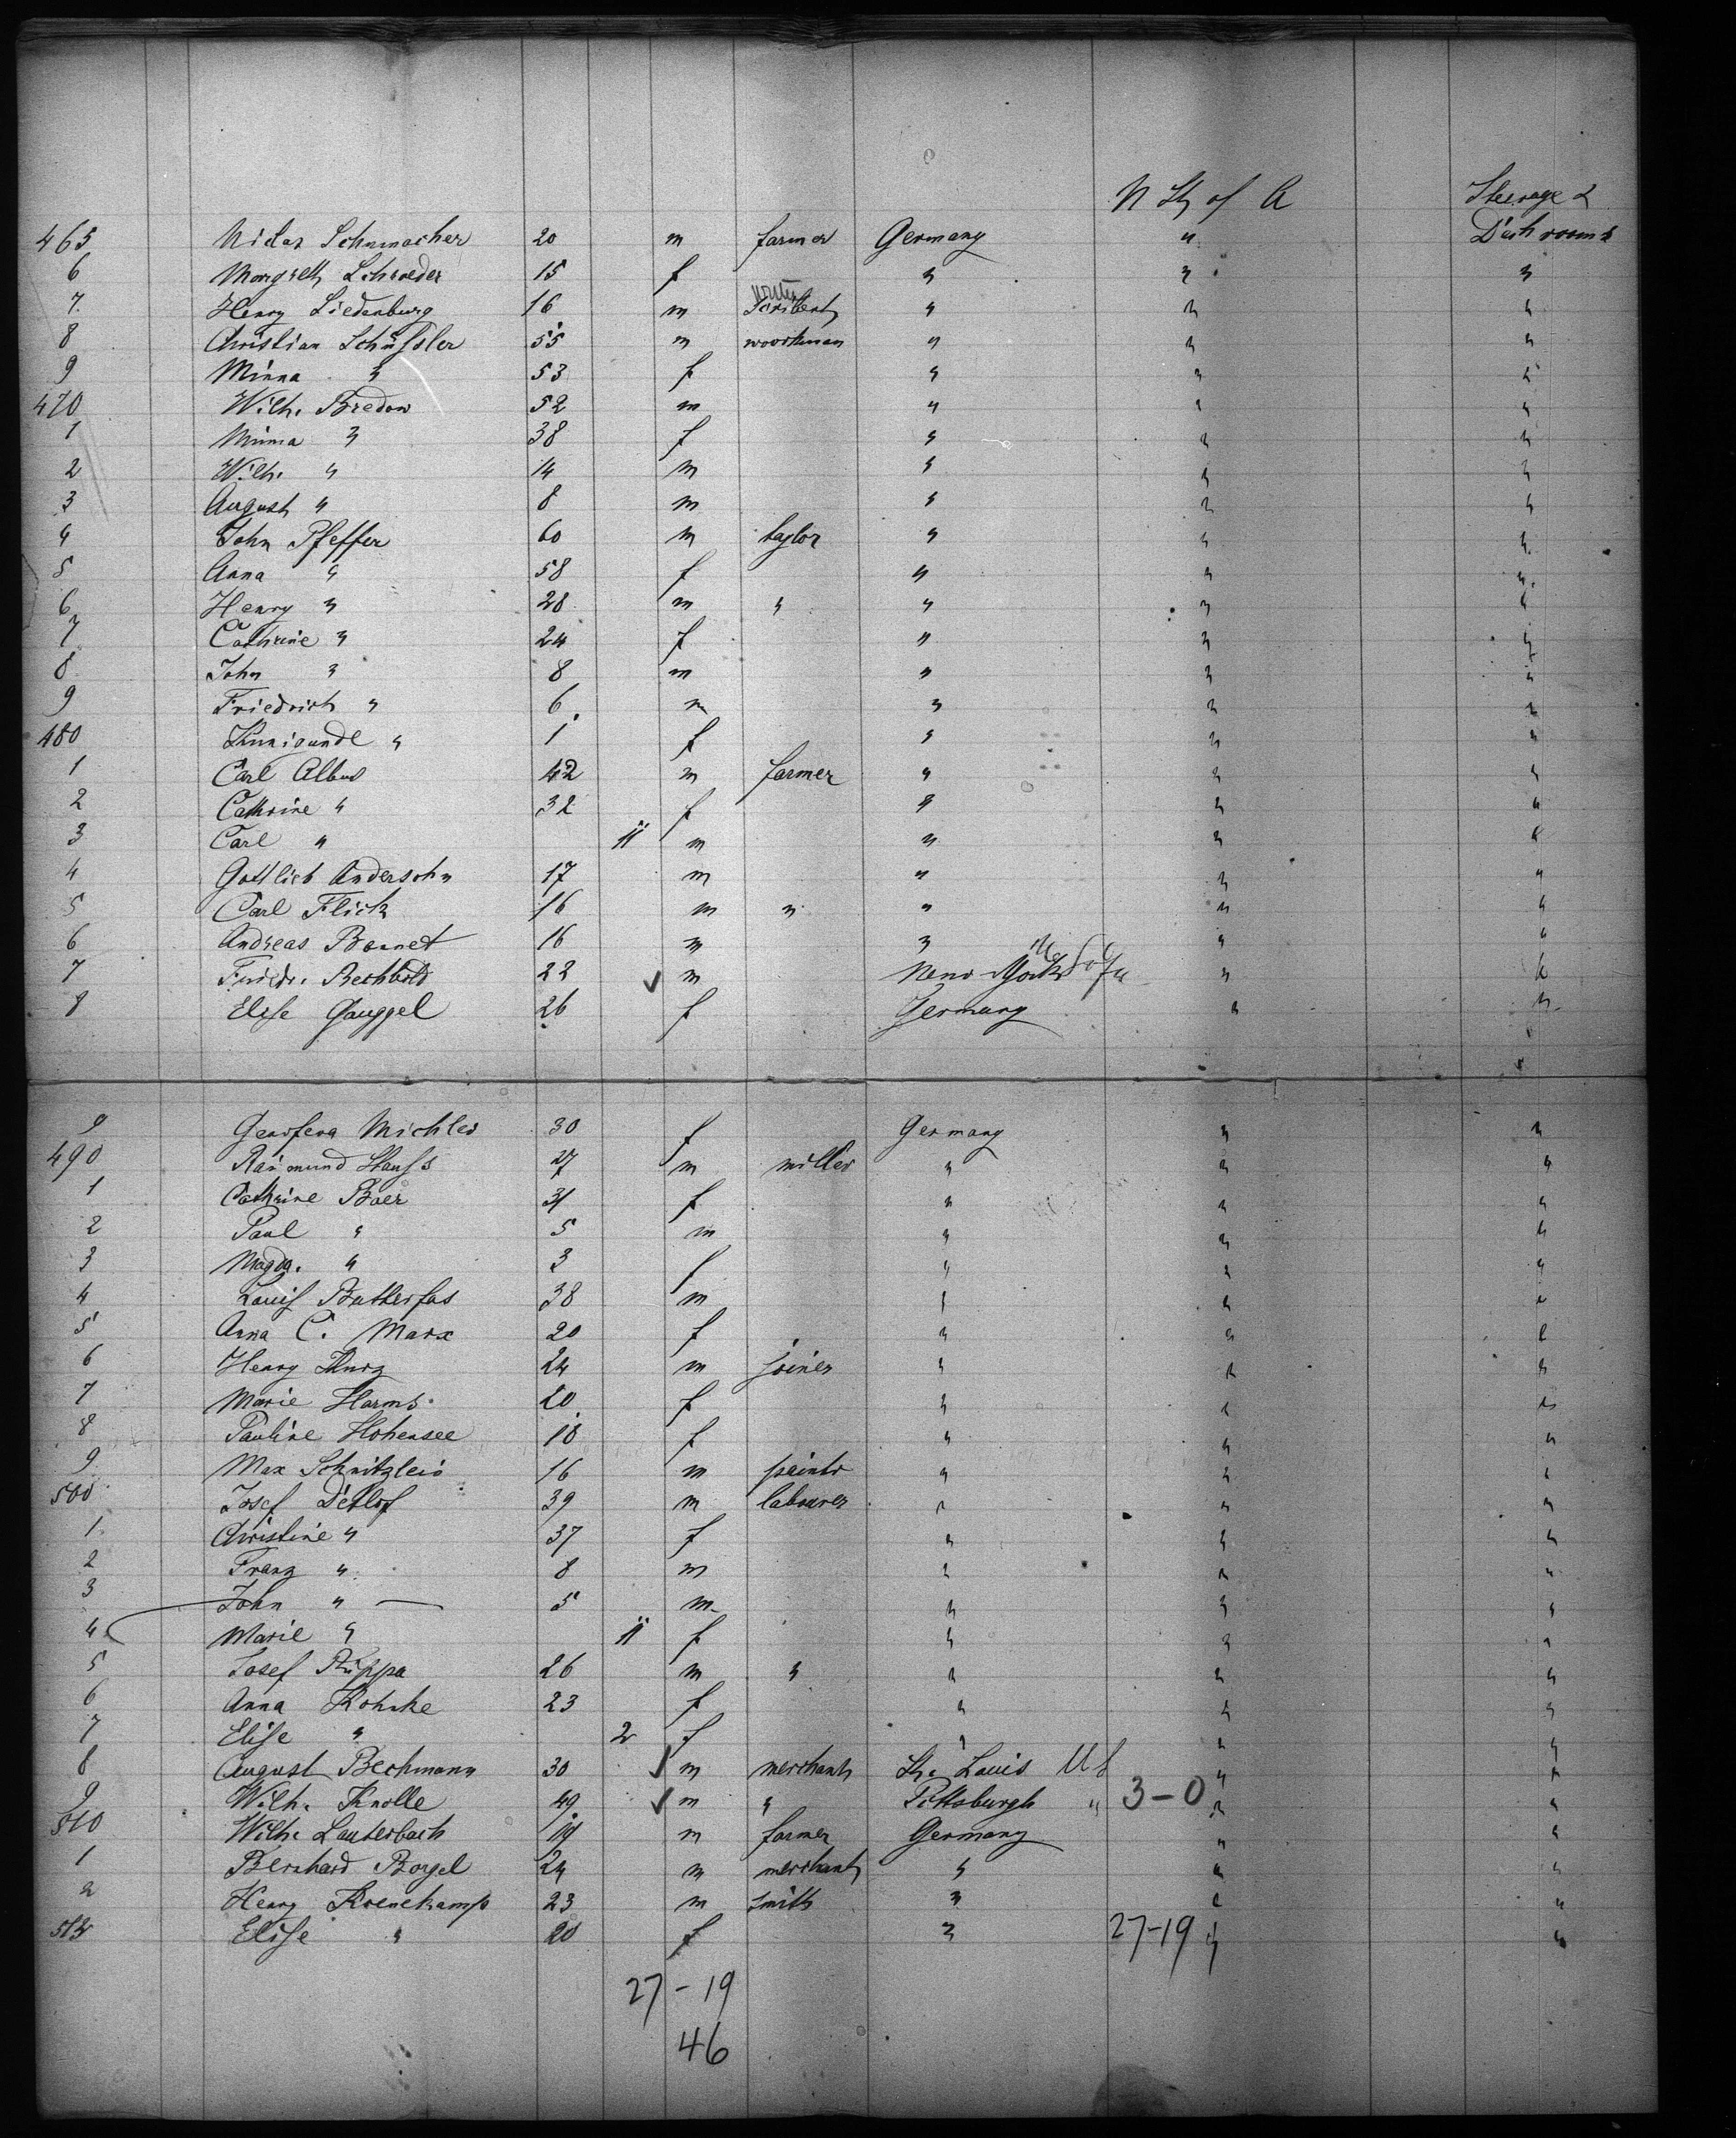 N St of A Steerage &
465 Niclas Schumacher 20 m farmer Germany " Deckrooms
6 Margreth Schroeder 15 f " " "
7 Henry Liedenburg 16 m " " "
8 Christian Schüssler 55 m workman " " "
9 Minna " 53 f " " "
470 Wilh. Bredow 52 m " " "
1 Minna " 38 f " " "
2 Wilh. " 14 m " " "
3 August " 8 m " " "
4 John Pfeffer 60 m taylor " " "
5 Anna " 58 f " " "
6 Henry " 28 m " " " "
7 Cathrine " 24 f " " "
8 John " 8 m " " "
9 Friedrich " 6 m " " "
480 Kunigunde " 1 f " " "
1 Carl Albus 42 m farmer " " "
2 Cathrine " 32 f " " "
3 Carl " 11 m " " "
4 Gottlieb Andersohn 17 m " " "
5 Carl Flick 16 m " " " "
6 Andreas Bonnet 16 m " " "
7 Friedr. Bechtold 22 m New York " "
8 Elise Gauggel 26 f Germany " "
9 Genofeva Michler 30 f Germany " "
490 Raimund Hauss 27 m miller " " "
1 Cathrine Baer 31 f " " "
2 Paul " 5 m " " "
3 Magda. " 3 f " " "
4 Louis Butterfas 38 m " " "
5 Anna C. Marx 20 f " " "
6 Henry Kurz 24 m joiner " " "
7 Marie Harms 20 f " " "
8 Pauline Hohensee 18 f " " "
9 Max Schnitzlein 16 m painter " " "
500 Josef Detlof 39 m labourer " " "
1 Christine " 37 f " " "
2 Franz " 8 m " " "
3 John " 5 m " " "
4 Marie " 11 f " " "
5 Josef Rüppa 26 m " " " "
6 Anna Kohnke 23 f " " "
7 Elise " 2 f " " "
8 August Bechmann 30 m merchant St. Louis US " "
9 Wilh. Knolle 49 m " Pittsburgh " 3-0 " "
510 Wilh. Lauterbach 19 m farmer Germany " "
1 Bernhard Borgel 24 m merchant " " "
2 Henry Koenekamp 23 m smith " " "
513 Elise " 20 f " 27-19 " "
27-19
46